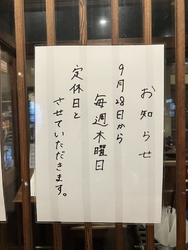 お知らせ
9月28日から
毎週木曜日
定休日と
させていただきます。